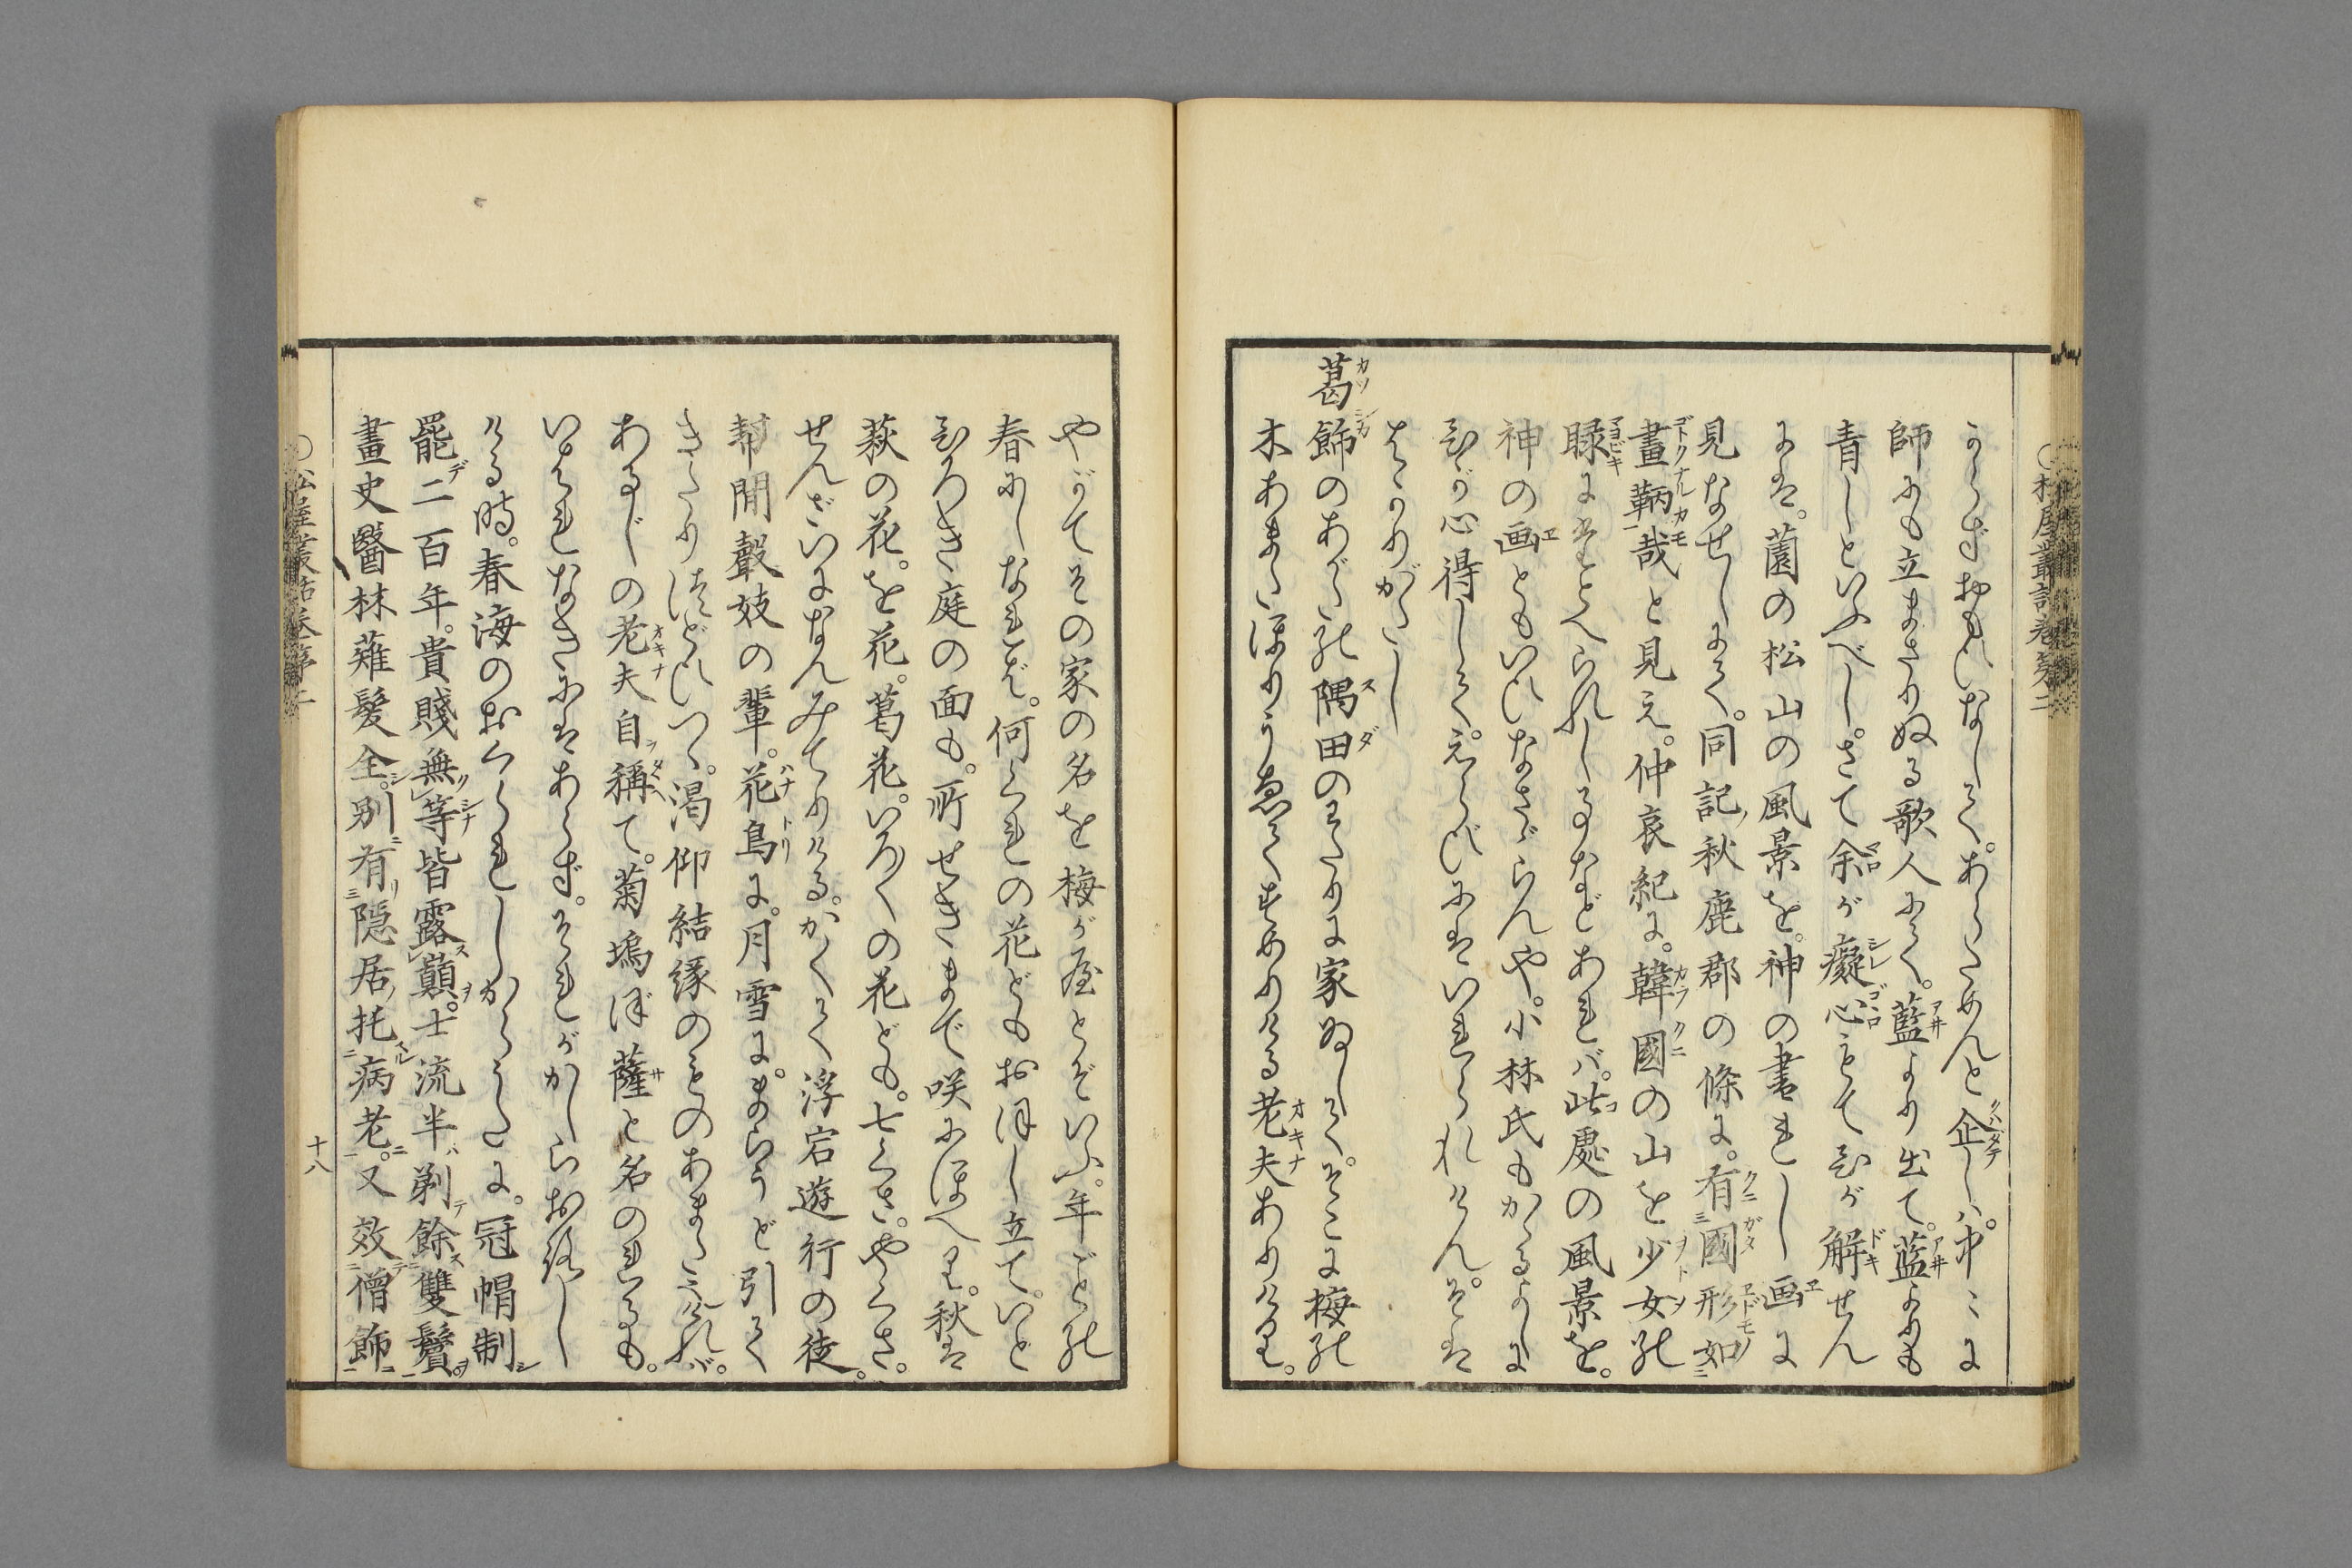 からずおもひなして。あらためんと企しハ。中々に
師にも立まさりぬる歌人にて。藍より出て。藍よりも
青しといふべし。さて余が癡心もてひが解せん
には。薗の松山の風景を。神の書れし画に
見なせしにて。同記秋鹿郡の條に。有國形如
畫鞆哉と見え。仲哀紀に。韓國の山を少女の
睩にたとへられしるなどあれバ。此處の風景を。
神の画ともいひなさゞらんや。小林氏もかゝるよしに
ひが心得して。えらびにはいれられけん。そは
はかりがたし
葛飾のあがた隅田のわたりに家ゐして。そこに梅の
木あまたほりうゑてすめりける老夫ありけり。
やがてその家の名を梅が屋とぞいふ。年ごとの
春にしなれば。何くれの花どもおほし立て。いと
ひろき庭の面も。所せきまで咲にほへり。秋は
萩の花。を花。葛花。いろ〳〵の花ども。七くさ。やくさ。
せんざいになんみてりける。かくて浮宕遊行の徒。
幇間聲妓の輩。花鳥に。月雪に。まらうど引て
きたりつどひつゝ。渇仰結縁のものあまたなれバ。
あるじの老夫自稱て。菊塢ぼ薩と名のれるも。
いはれなきにはあらず。それがかしらおろし
ける時。春海のおくられしからうたに。冠帽制
罷二百年。貴賤無等皆露巓。士流半剃餘雙鬢
畫史醫林薙髮全。別有隠居托病老。又效僧飾
十八